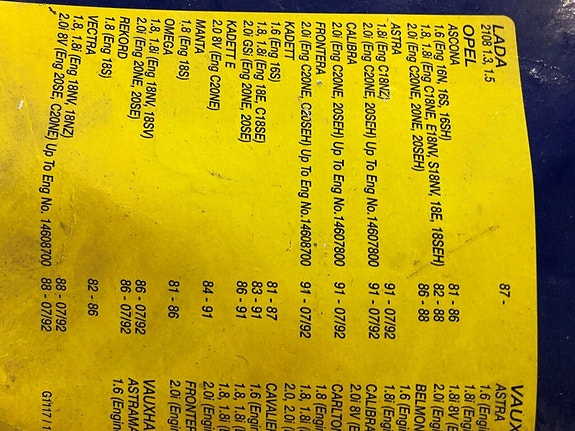 LADA
2108 1.3, 1.5 87 -
OPEL
ASCONA
1.6 (Eng 16N, 16S, 16SH) 81 - 86
1.8, 1.8i (Eng C18NE, E18NV, S18NV, 18E, 18SEH) 82 - 88
2.0i (Eng C20NE, 20NE, 20SEH) 86 - 88
ASTRA
1.8i (Eng C18NZ) 91 - 07/92
2.0i (Eng C20NE, 20SEH) Up To Eng No.14607800 91 - 07/92
CALIBRA
2.0i (Eng C20NE, 20SEH) Up To Eng No.14607800 91 - 07/92
FRONTERA
2.0i (Eng C20NE, C20SEH) Up To Eng No.14608700 91 - 07/92
KADETT
1.6 (Eng 16S) 81 - 87
1.8, 1.8i (Eng 18E, C18SE) 83 - 91
2.0i GSi (Eng 20NE, 20SE) 86 - 91
KADETT E
2.0 8V (Eng C20NE) 84 - 91
MANTA
1.8 (Eng 18S) 81 - 86
OMEGA
1.8, 1.8i (Eng 18NV, 18SV) 86 - 07/92
2.0i (Eng 20NE, 20SE) 86 - 07/92
REKORD
1.8 (Eng 18S) 82 - 86
VECTRA
1.8, 1.8i (Eng 18NV, 18NZ) 88 - 07/92
2.0i 8V (Eng 20SE, C20NE) Up To Eng No. 14608700 88 - 07/92
VAUX
ASTRA
1.6 (Engin
1.8i 8V (E
2.0i (Engin
BELMON
1.6 (Engin
1.8, 1.8i (
CALIBRA
2.0i 8V (E
CARLTON
1.8 (Engin
2.0, 2.0i (
CAVALIE
1.6 (Engin
1.8, 1.8i (
1.8, 1.8i (
2.0i (Engin
FRONTER
2.0i (Engin
VAUXHA
ASTRAMA
1.6 (Engin
G1117 / 1